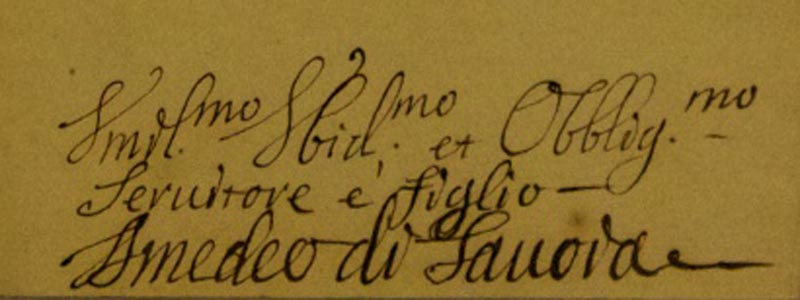 Vmil.mo Vbid.mo et Obblig.mo
Seruitore e figlio
Amedeo di Sauoia